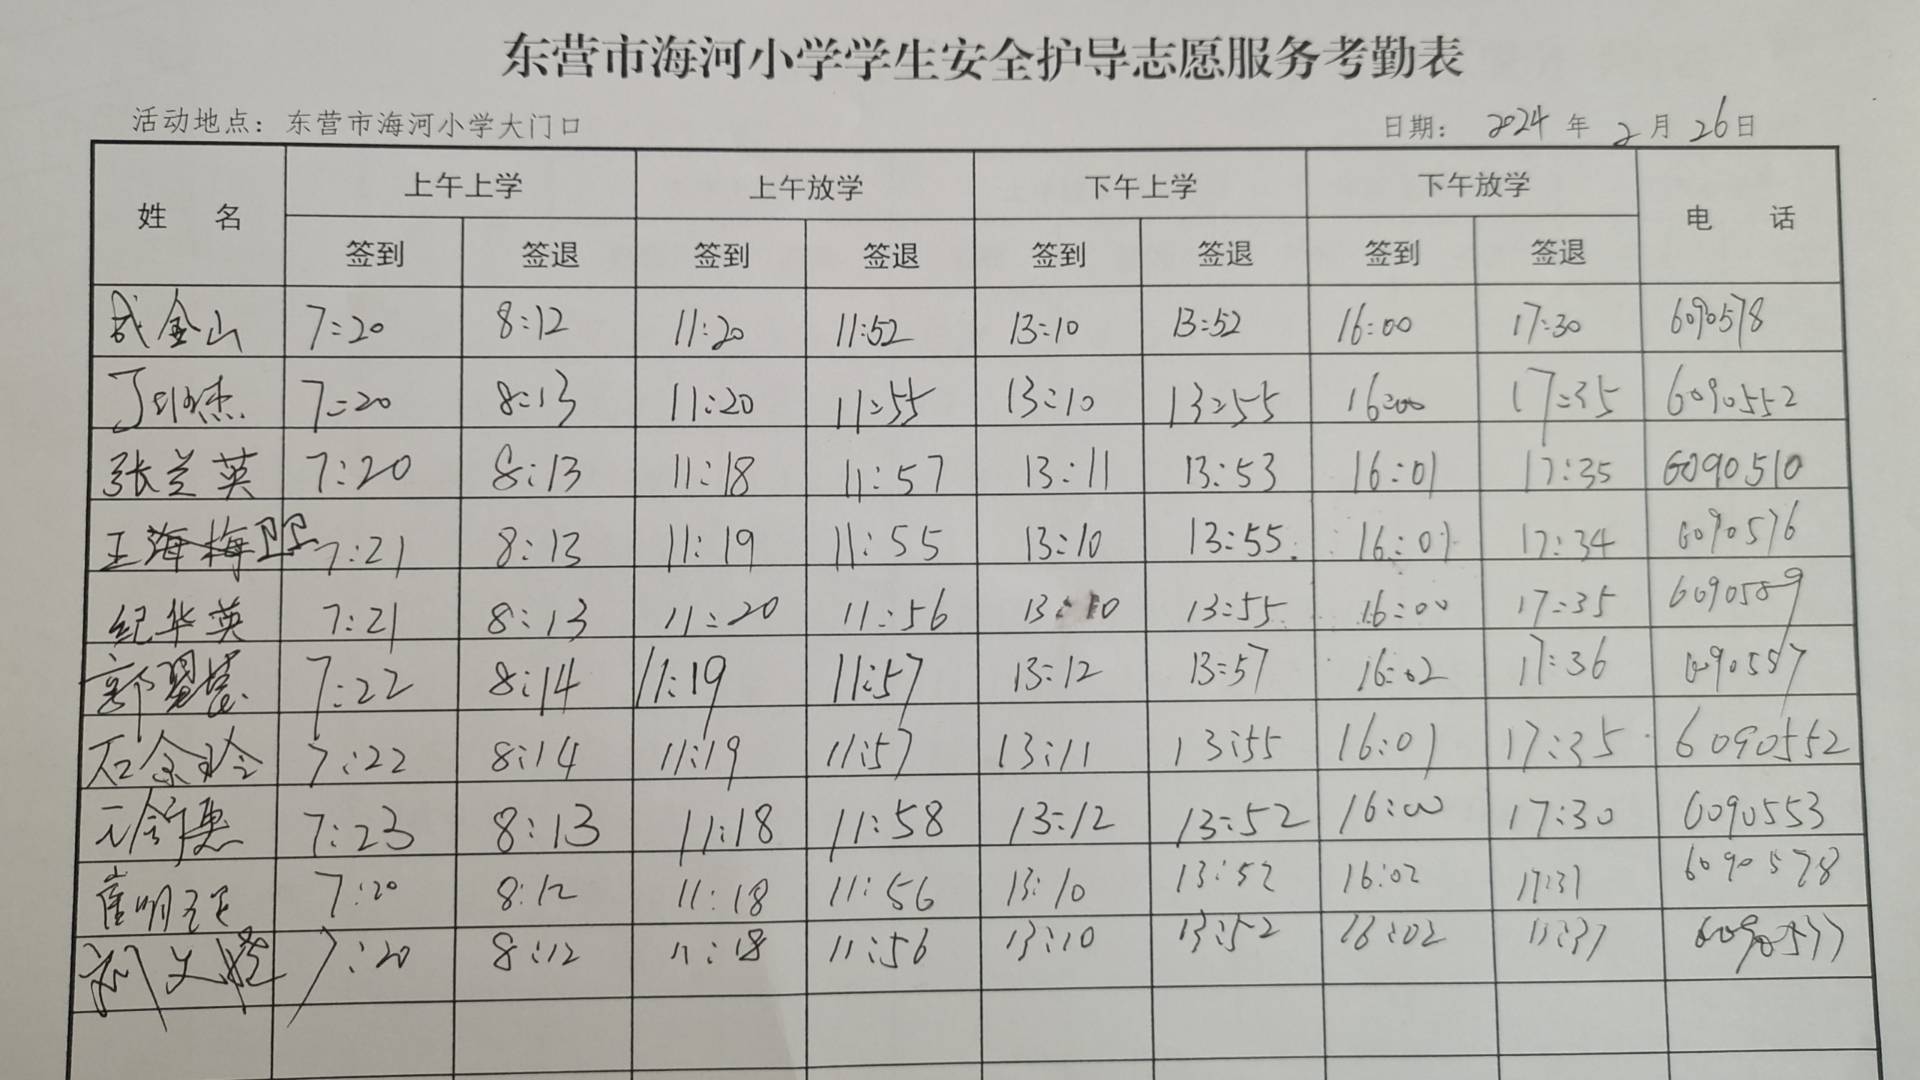 东营市海河小学学生安全护导志愿服务考勤表
活动地点：东营市海河小学大门口 日期： 2024 年 2 月 26 日
姓 名 上午上学 上午放学 下午上学 下午放学 电 话
签到 签退 签到 签退 签到 签退 签到 签退
金山 7:20 8:12 11:20 11:52 13:10 13:52 16:00 17:30 6090578
丁 杰 7:20 8:13 11:20 11:55 13:10 13:55 16:00 17:35 6090552
张兰英 7:20 8:13 11:18 11:57 13:11 13:53 16:01 17:35 6090510
王海梅 7:21 8:13 11:19 11:55 13:10 13:55 16:01 17:34 6090576
纪华英 7:21 8:13 11:20 11:56 13:10 13:55 16:00 17:35 6090589
郭 慧 7:22 8:14 11:19 11:57 13:12 13:57 16:02 17:36
石 玲 7:22 8:14 11:19 11:57 13:11 13:55 16:01 17:35 6090552
7:23 8:13 11:18 11:58 13:12 13:52 16:00 17:30 6090553
崔明 7:20 8:12 11:18 11:56 13:10 13:52 16:02 17:31 6090578
刘文 7:20 8:12 11:18 11:56 13:10 13:52 16:02